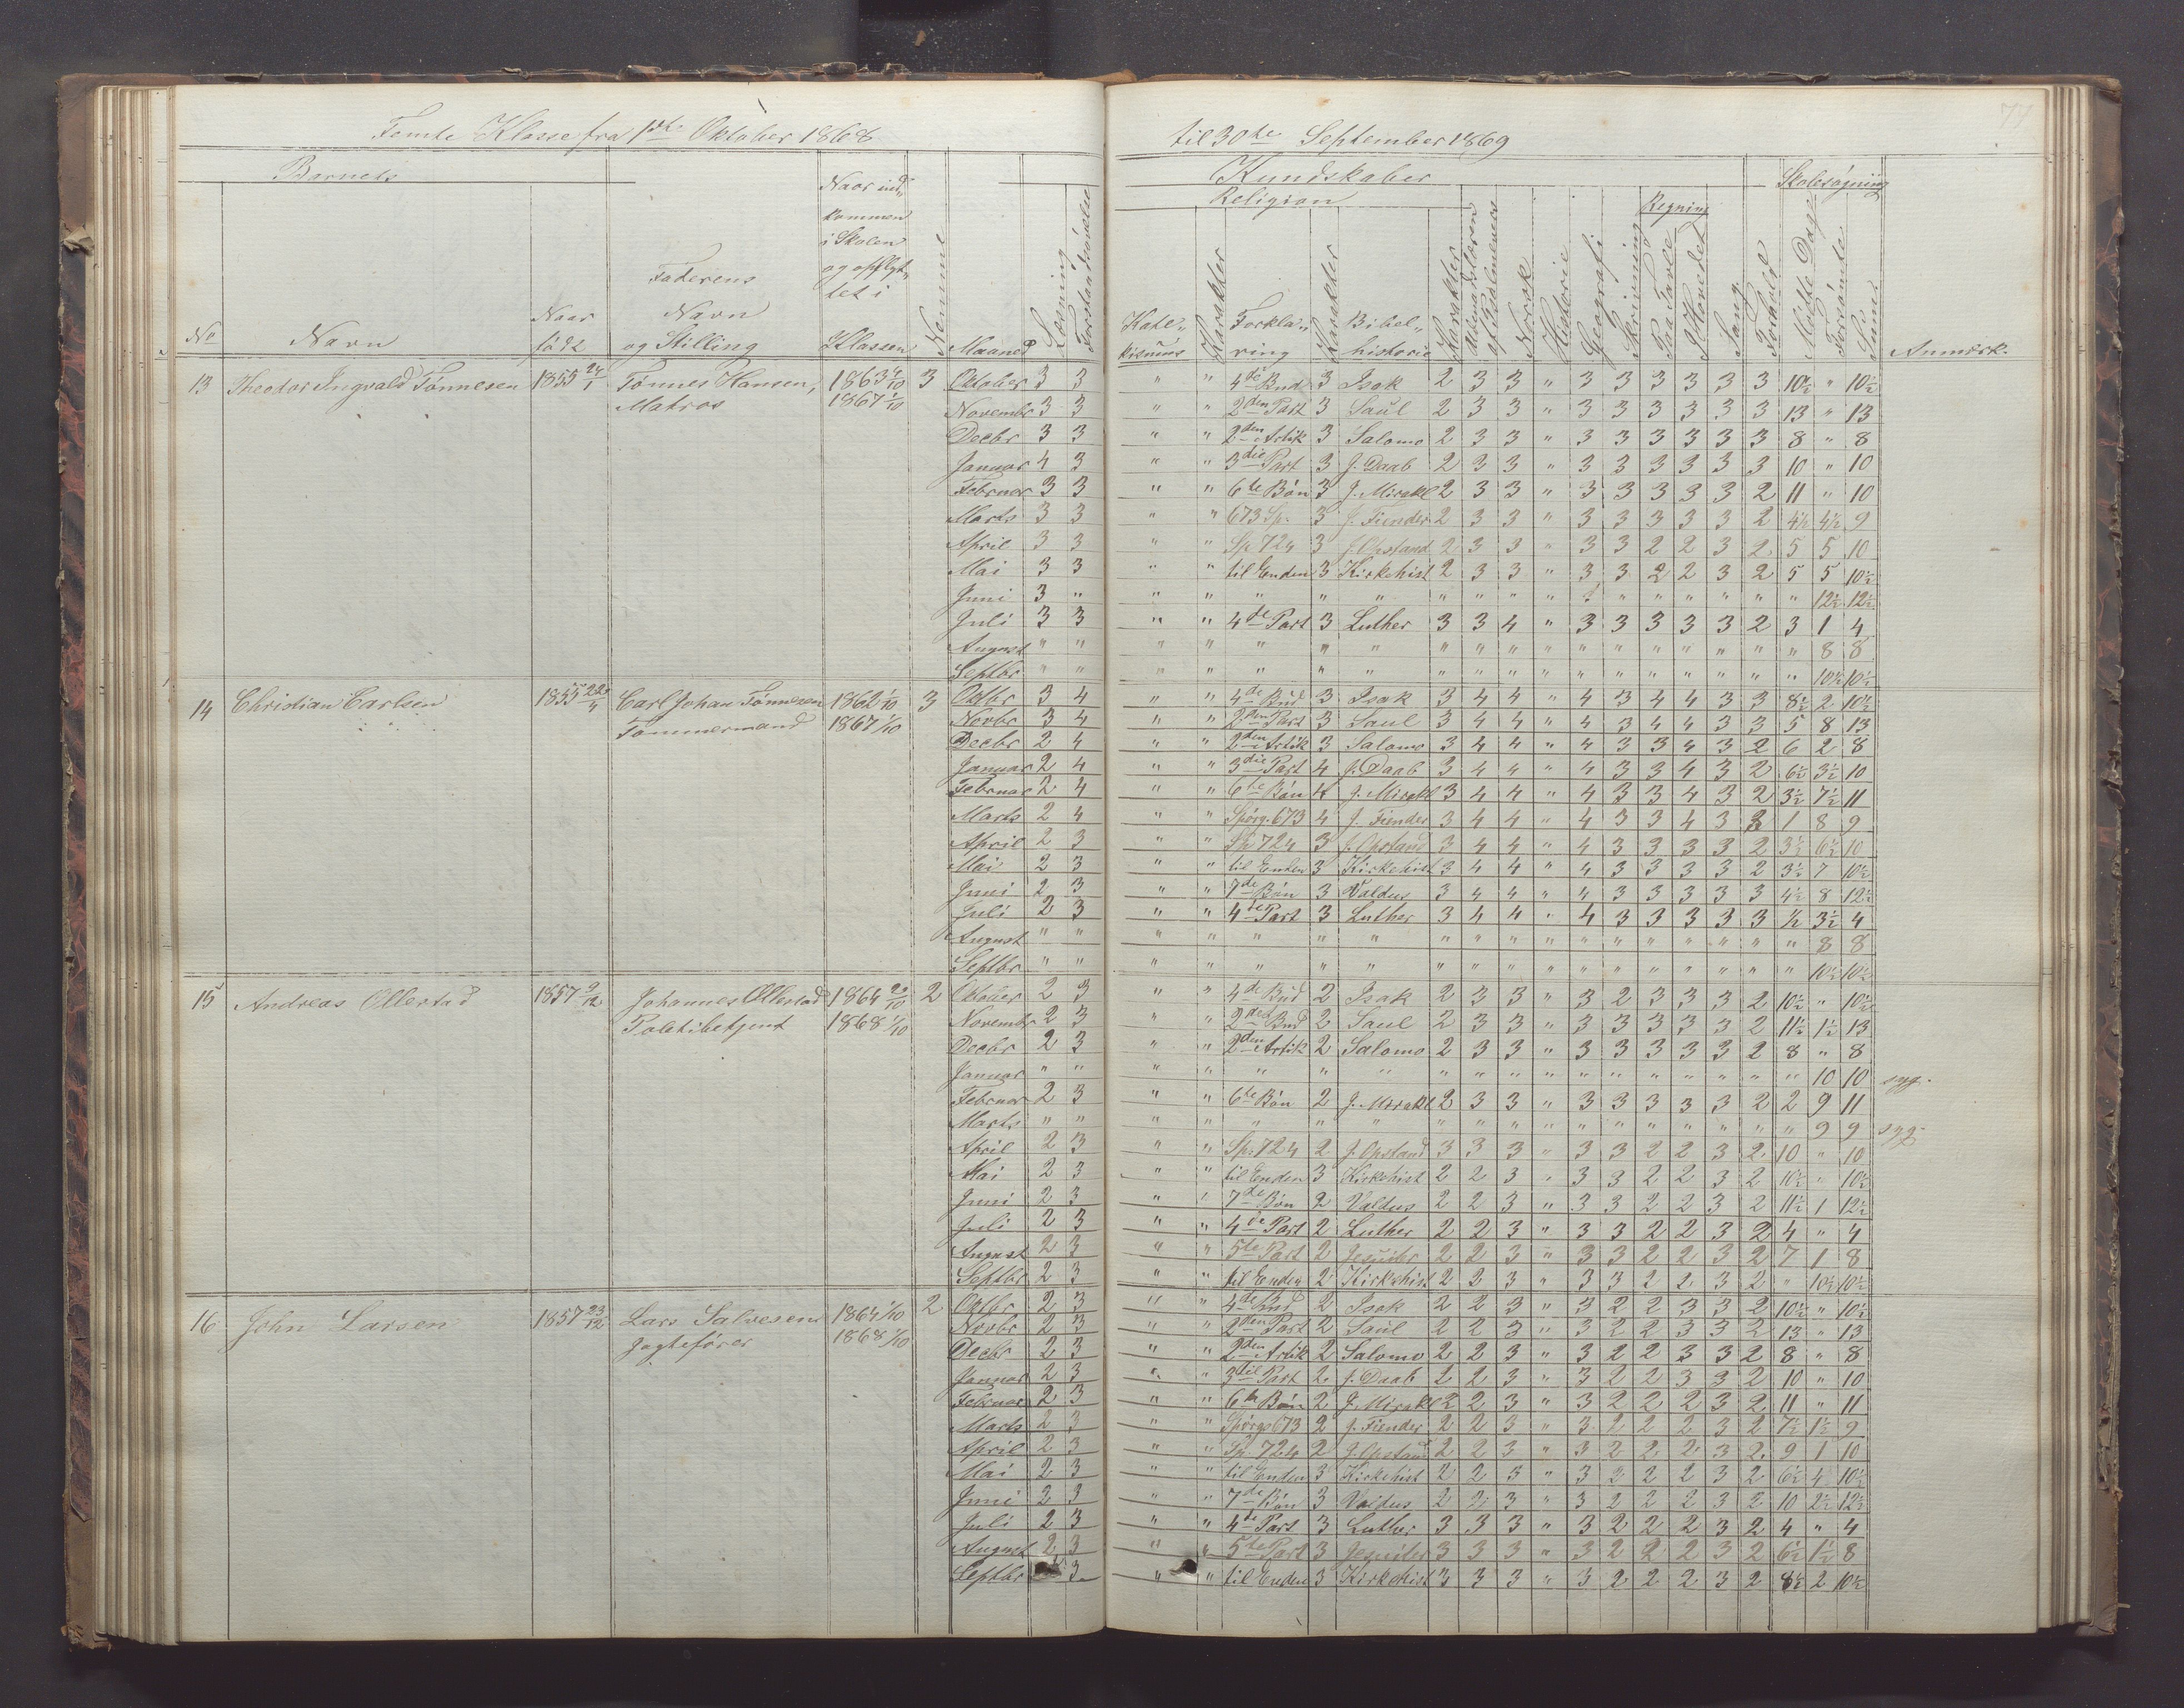 Femte Klasse fra 1ste Oktober 1868 til 30te September 1869
77
Barnets
Kundskaber
Skolesøgning
Religion
Regning
No
Navn
Naar født
Faderens Navn og Stilling
Naar ind„ kommen i Skolen og opflyt„ tet i Klassen
Nemme
Maaned
Læsning
Forstandsøvelse
Kate„ kismus
Karakter
Forkla„ ring
Karakter
Bibel„ historie
Karakter
Norsk
Historie
Geografi
Skrivning
Paa Tavle
I Hovedet
Sang
Forhold
Mødte Dage
Forsømte
Sum
Anmærk.
13 Theodor Ingvald Tønnesen 1855 24/1 Tønnes Hansen, 1863 1/10 3 Oktober 3 3 " " 4de Bud 3 Isak 2 3 3 " 3 3 3 3 3 3 10½ " 10½
Matros 1867 1/10 Novembr 3 3 " " 2den Part 3 Saul 2 3 3 " 3 3 3 3 3 3 13 " 13
Decbr 3 3 " " 2den Artik 3 Salomo 2 3 3 " 3 3 3 3 3 3 8 " 8
Januar 4 3 " " 3die Part 3 J. Daab 2 3 3 " 3 3 3 3 3 3 10 " 10
Februar 3 3 " " 6te Bøn 3 J. Mirakl 2 3 3 " 3 3 3 3 3 2 11 " 10
Marts 3 3 " " 673 Sp. 3 J. Fiender 2 3 3 " 3 3 3 3 3 2 4½ 4½ 9
April 3 3 " " Sp 724 3 J. Opstand 2 3 3 " 3 3 2 2 3 2 5 5 10
Mai 3 3 " " til Enden 3 Kirkehist 2 3 3 " 3 3 2 2 3 2 5 5 10½
Juni 3 " " " " " " " " " " " " " " " " " 12½ 12½
Juli 3 3 " " 4de Part 3 Luther 3 3 4 " 3 3 3 3 3 2 3 1 4
August " " " " " " " " " " " " " " " " " " 8 8
Septbr " " " " " " " " " " " " " " " " " " 10½ 10½
14 Christian Carlsen 1855 22/4 Carl Johan Tønnesen 1862 1/10 3 Octbr 3 4 " " 4de Bud 3 Isak 3 4 4 " 4 3 4 4 3 3 8½ 2 10½
Tømmermand 1867 1/10 Novbr 3 4 " " 2den Part 3 Saul 3 4 4 " 4 3 4 4 3 3 5 8 13
Decbr 2 4 " " 2den Artik 3 Salomo 3 4 4 " 4 3 3 4 3 2 6 2 8
Januar 2 4 " " 3die Part 4 J. Daab 3 4 4 " 4 3 3 4 3 2 6½ 3½ 10
Februar 2 4 " " 6te Bøn 4 J. Mirakl 3 4 4 " 4 3 3 4 3 2 3½ 7½ 11
Marts 2 4 " " Spørg. 673 4 J. Fiender 3 4 4 " 4 3 3 4 3 2 1 8 9
April 2 3 " " Sp 724 3 J. Opstand 3 4 4 " 4 3 3 3 3 2 3½ 6½ 10
Mai 2 3 " " til Enden 3 Kirkehist 3 4 4 " 4 3 3 3 3 2 3½ 7 10½
Juni 2 3 " " 7de Bøn 3 Valdus 3 4 4 " 4 3 3 3 3 3 4½ 8 12½
Juli 2 3 " " 4de Part 3 Luther 3 4 4 " 4 3 3 3 3 3 ½ 3½ 4
August " " " " " " " " " " " " " " " " " " 8 8
Septbr " " " " " " " " " " " " " " " " " " 10½ 10½
15 Andreas Ollestad 1857 9/12 Johannes Ollestad 1864 20/10 2 Oktober 2 3 " " 4de Bud 2 Isak 2 3 3 " 3 2 3 3 3 2 10½ " 10½
Politibetjent 1868 1/10 Novembr 2 3 " " 2det Bud 2 Saul 2 3 3 " 3 3 3 3 3 2 11½ 1½ 13
Decbr 2 3 " " 2den Artik 2 Salomo 2 3 3 " 3 3 3 3 3 2 8 " 8
Januar " " " " " " " " " " " " " " " " " " 10 10 syg.
Februar 2 3 " " 6te Bøn 2 J. Mirakl 2 3 3 " 3 3 3 3 3 2 2 9 11
Marts " " " " " " " " " " " " " " " " " " 9 9 syg.
April 2 3 " " Sp. 724 2 J. Opstand 3 3 3 " 3 3 2 2 3 2 10 " 10
Mai 2 3 " " til Enden 3 Kirkehist 2 2 3 " 3 3 2 2 3 2 10½ " 10½
Juni 2 3 " " 7de Bøn 2 Valdus 2 2 3 " 3 3 2 2 3 2 11½ 1 12½
Juli 2 3 " " 4de Part 2 Luther 2 2 3 " 3 3 2 2 3 2 4 " 4
August 2 3 " " 5te Part 2 Jesuiter 2 2 3 " 3 3 2 2 3 2 7 1 8
Septbr 2 3 " " til Enden 2 Kirkehist 2 2 3 " 3 3 2 2 3 2 " 10½ 10½
16 John Larsen 1857 23/12 Lars Salvesen 1864 1/10 2 Octbr 2 3 " " 4de Bud 2 Isak 2 2 3 " 3 2 2 3 3 2 10½ " 10½
Jagtefører 1868 1/10 Novbr 2 3 " " 2den Part 2 Saul 2 2 3 " 3 2 2 3 3 2 13 " 13
Decbr 2 3 " " 2den Artik 2 Salomo 2 2 3 " 3 2 2 3 3 2 8 " 8
Januar 2 3 " " 3die Part 2 J. Daab 2 2 3 " 3 2 2 3 3 2 10 " 10
Februar 2 3 " " 6te Bøn 2 J. Mirakl 2 2 3 " 3 2 2 2 3 2 11 " 11
Marts 2 3 " " Spørgs 673 2 J. Fiender 2 2 3 " 3 2 2 2 3 2 7½ 1½ 9
April 2 3 " " Sp. 724 2 J. Opstand 2 2 3 " 3 2 2 2 3 2 9 1 10
Mai 2 3 " " til Enden 3 Kirkehist 2 2 3 " 3 2 2 2 3 2 6½ 4 10½
Juni 2 3 " " 7de Bøn 3 Valdus 2 2 3 " 3 2 2 2 3 2 10 2½ 12½
Juli 2 3 " " 4de Part 3 Luther 3 3 3 " 3 2 2 2 3 2 4 " 4
August 2 3 " " 5te Part 3 Jesuiter 3 3 3 " 3 2 2 2 3 2 6½ 1½ 8
Septbr 3 " " til Enden 3 Kirkehist 3 3 3 " 3 2 2 2 3 2 8½ 2 10½